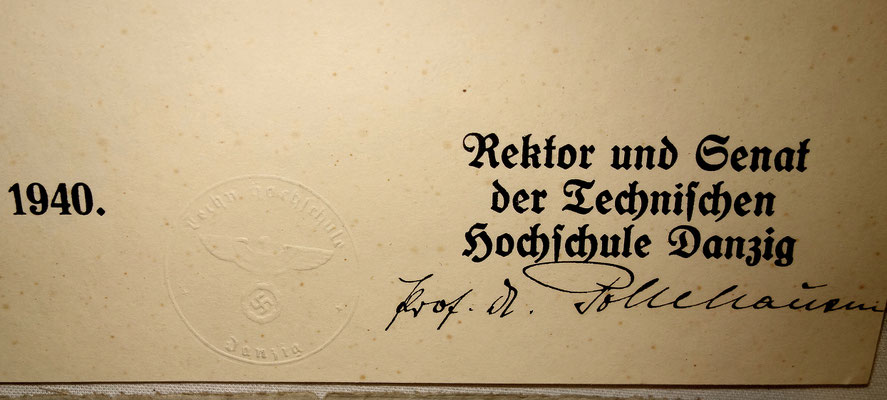 Rektor und Senat
der Technischen
Hochschule Danzig
1940.
Techn. Hochschule
Danzig
Prof. Dr. Pohlhausen